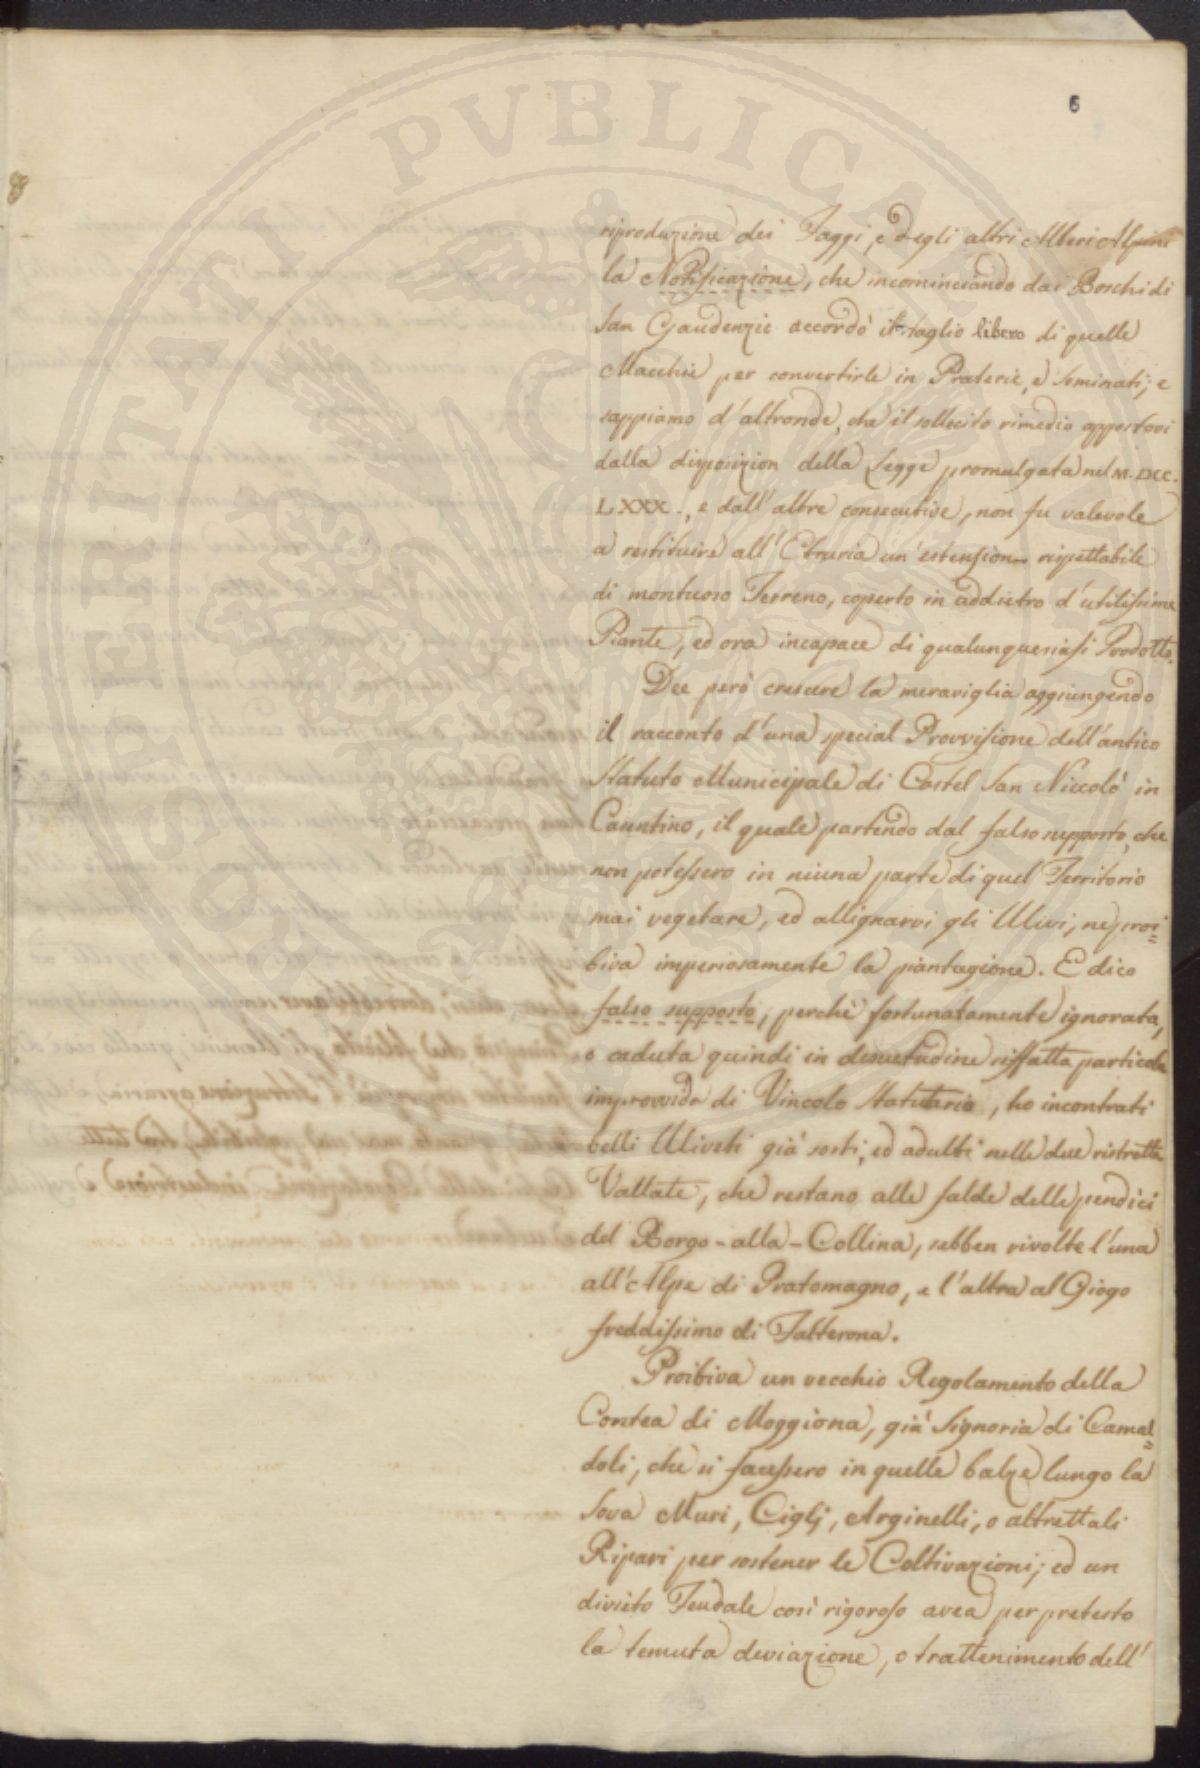 6
riproduzione dei Faggi, e degli altri Alberi Alpini
la Notificazione, che incominciando dai Boschi di
San Gaudenzio accordò il taglio libero di quelle
Macchie per convertirle in Praterie, e Seminati; e
sappiamo d'altronde, che il sollecito rimedio appostovi
dalla disposizion della Legge promulgata nel M.DCC.
LXXX., e dall'altre consecutive, non fu valevole
a restituire all'Etruria un'estension rispettabile
di montuoso Terreno, coperto in addietro d'utilissime
Piante, ed ora incapace di qualunquesiasi Prodotto.
Dee però crescere la meraviglia aggiungendo
il racconto d'una special Provvisione dell'antico
Statuto Municipale di Castel San Niccolò in
Casentino, il quale partendo dal falso supposto, che
non potessero in niuna parte di quel Territorio
mai vegetare, ed allignarvi gli Ulivi, ne proi=
biva imperiosamente la piantagione. E dico
falso supposto; perchè fortunatamente ignorata,
o caduta quindi in desuetudine siffatta particola
improvvida di Vincolo Statutario, ho incontrati
belli Uliveti già sorti, ed adulti nelle due ristrette
Vallate, che restano alle falde delle pendici
del Borgo-alla-Collina, sebben rivolte l'una
all'Alpe di Pratomagno, e l'altra al Giogo
freddissimo di Falterona.
Proibiva un vecchio Regolamento della
Contea di Moggiona, già Signoria di Camal=
doli, che si facessero in quelle balze lungo la
Sova Muri, Ciglj, Arginelli, o altrettali
Ripari per sostener le Coltivazioni; ed un
divieto Feudale così rigoroso avea per pretesto
la temuta deviazione, o trattenimento dell'
PROSPERITATI PUBLICAE